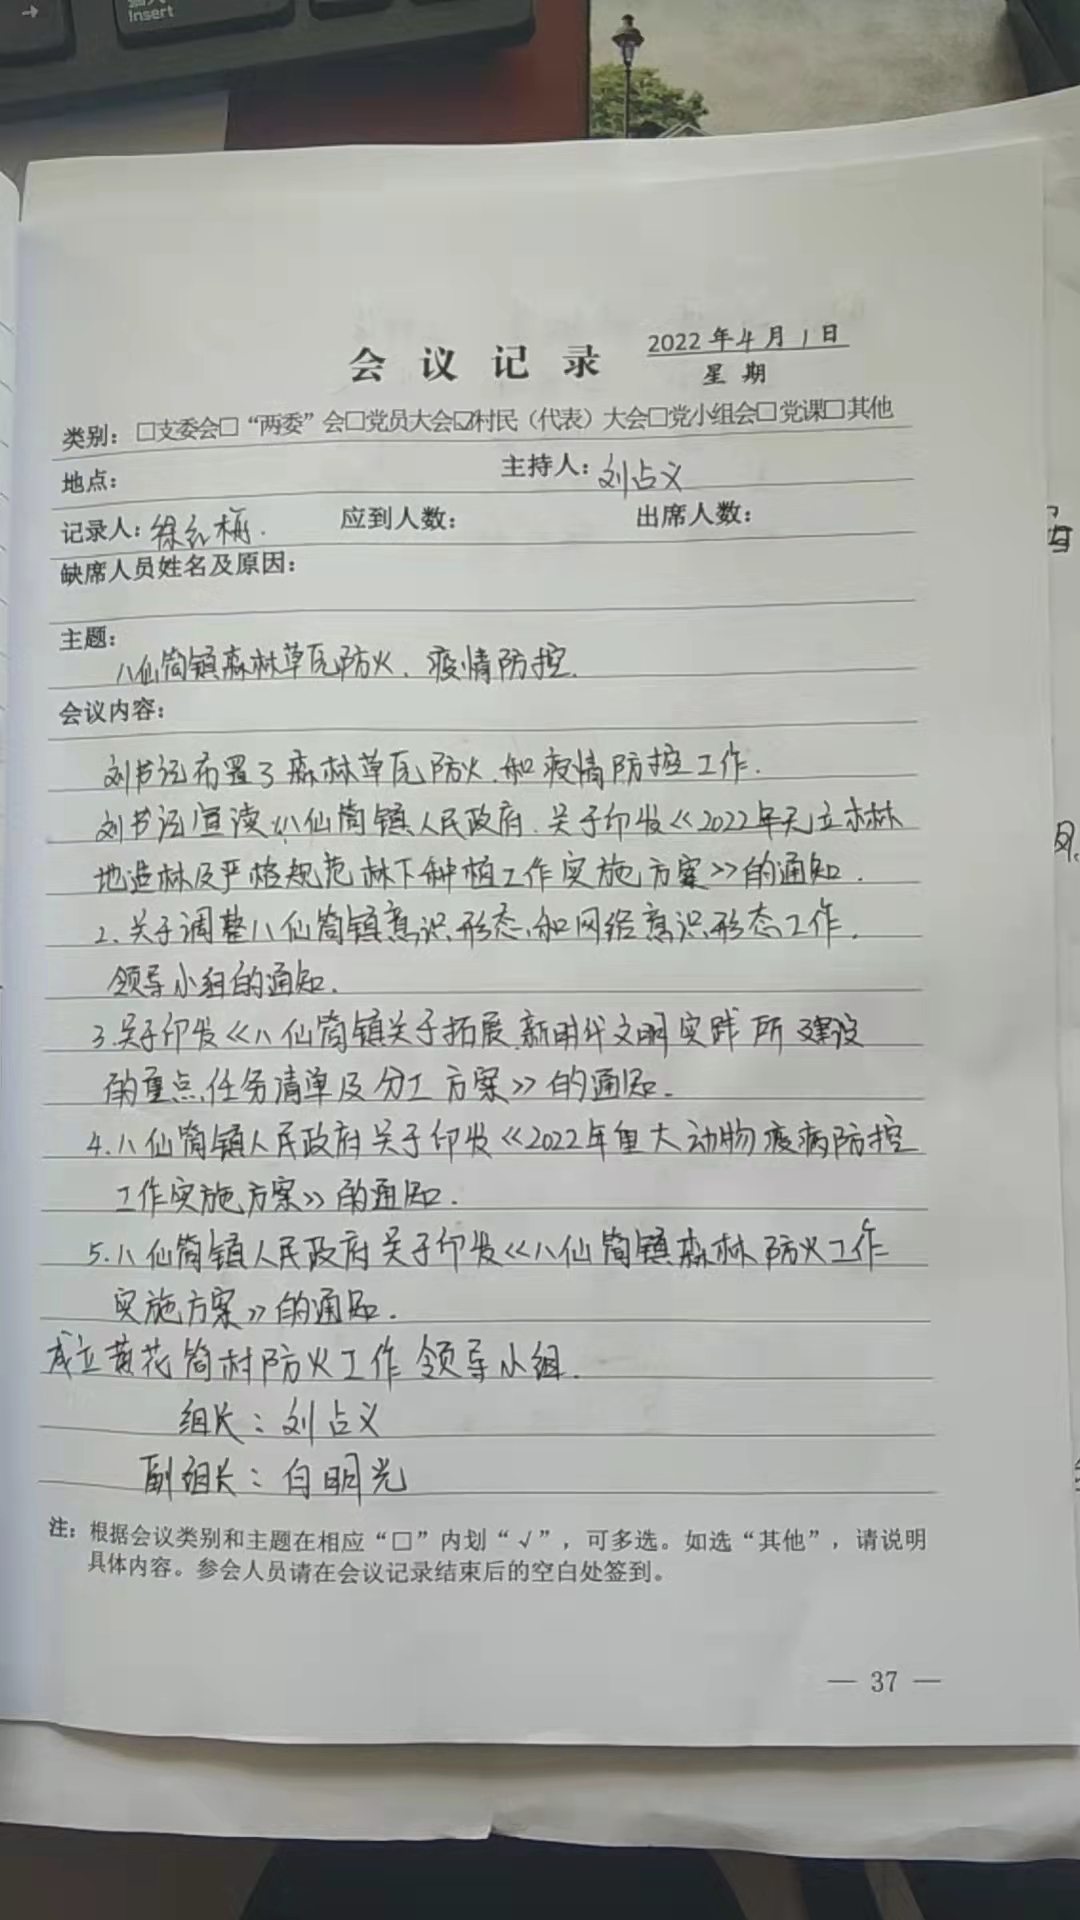 Insert
会议记录
2022年4月1日
星期
类别：□支委会□“两委”会□党员大会☑村民（代表）大会□党小组会□党课□其他
地点：
主持人：刘占义
记录人：徐红梅.
应到人数：
出席人数：
缺席人员姓名及原因：
主题：
八仙筒镇森林草瓦防火、疫情防控.
会议内容：
刘书记布置了森林草瓦防火、和疫情防控工作.
刘书记宣读《八仙筒镇人民政府、关于印发《2022年无立木林
地造林及严格规范林下种植工作实施方案》的通知.
2、关于调整八仙筒镇意识形态、和网络意识形态工作.
领导小组的通知.
3.关于印发《八仙筒镇关于拓展新时代文明实践所建设
的重点任务清单及分工方案》的通知.
4.八仙筒镇人民政府关于印发《2022年重大动物疫病防控
工作实施方案》的通知.
5.八仙筒镇人民政府关于印发《八仙筒镇森林防火工作
实施方案》的通知.
成立黄花筒村防火工作领导小组.
组长：刘占义
副组长：白明光
注：根据会议类别和主题在相应“□”内划“√”，可多选。如选“其他”，请说明
具体内容。参会人员请在会议记录结束后的空白处签到。
— 37 —